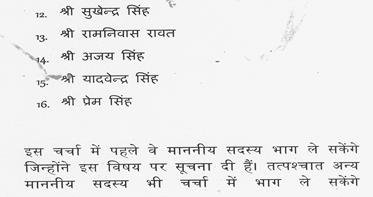 12. श्री सुखेन्द्र सिंह
13. श्री रामनिवास रावत
14. श्री अजय सिंह
15. श्री यादवेन्द्र सिंह
16. श्री प्रेम सिंह
इस चर्चा में पहले वे माननीय सदस्य भाग ले सकेंगे
जिन्होंने इस विषय पर सूचना दी हैं। तत्पश्चात अन्य
माननीय सदस्य भी चर्चा में भाग ले सकेंगे